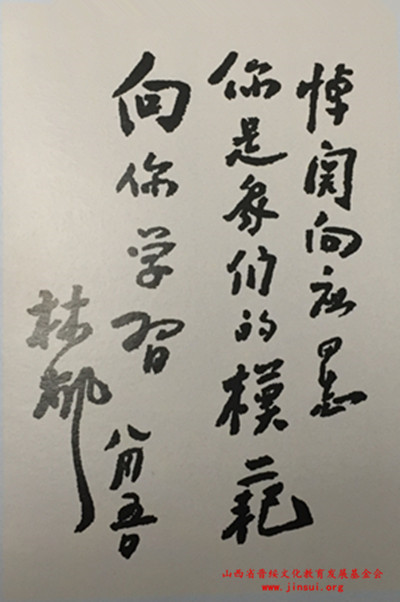 悼関向应同志
你是我们的模範
向你学習
八月五日
林楓
山西省晋绥文化教育发展基金会
www.jinsui.org